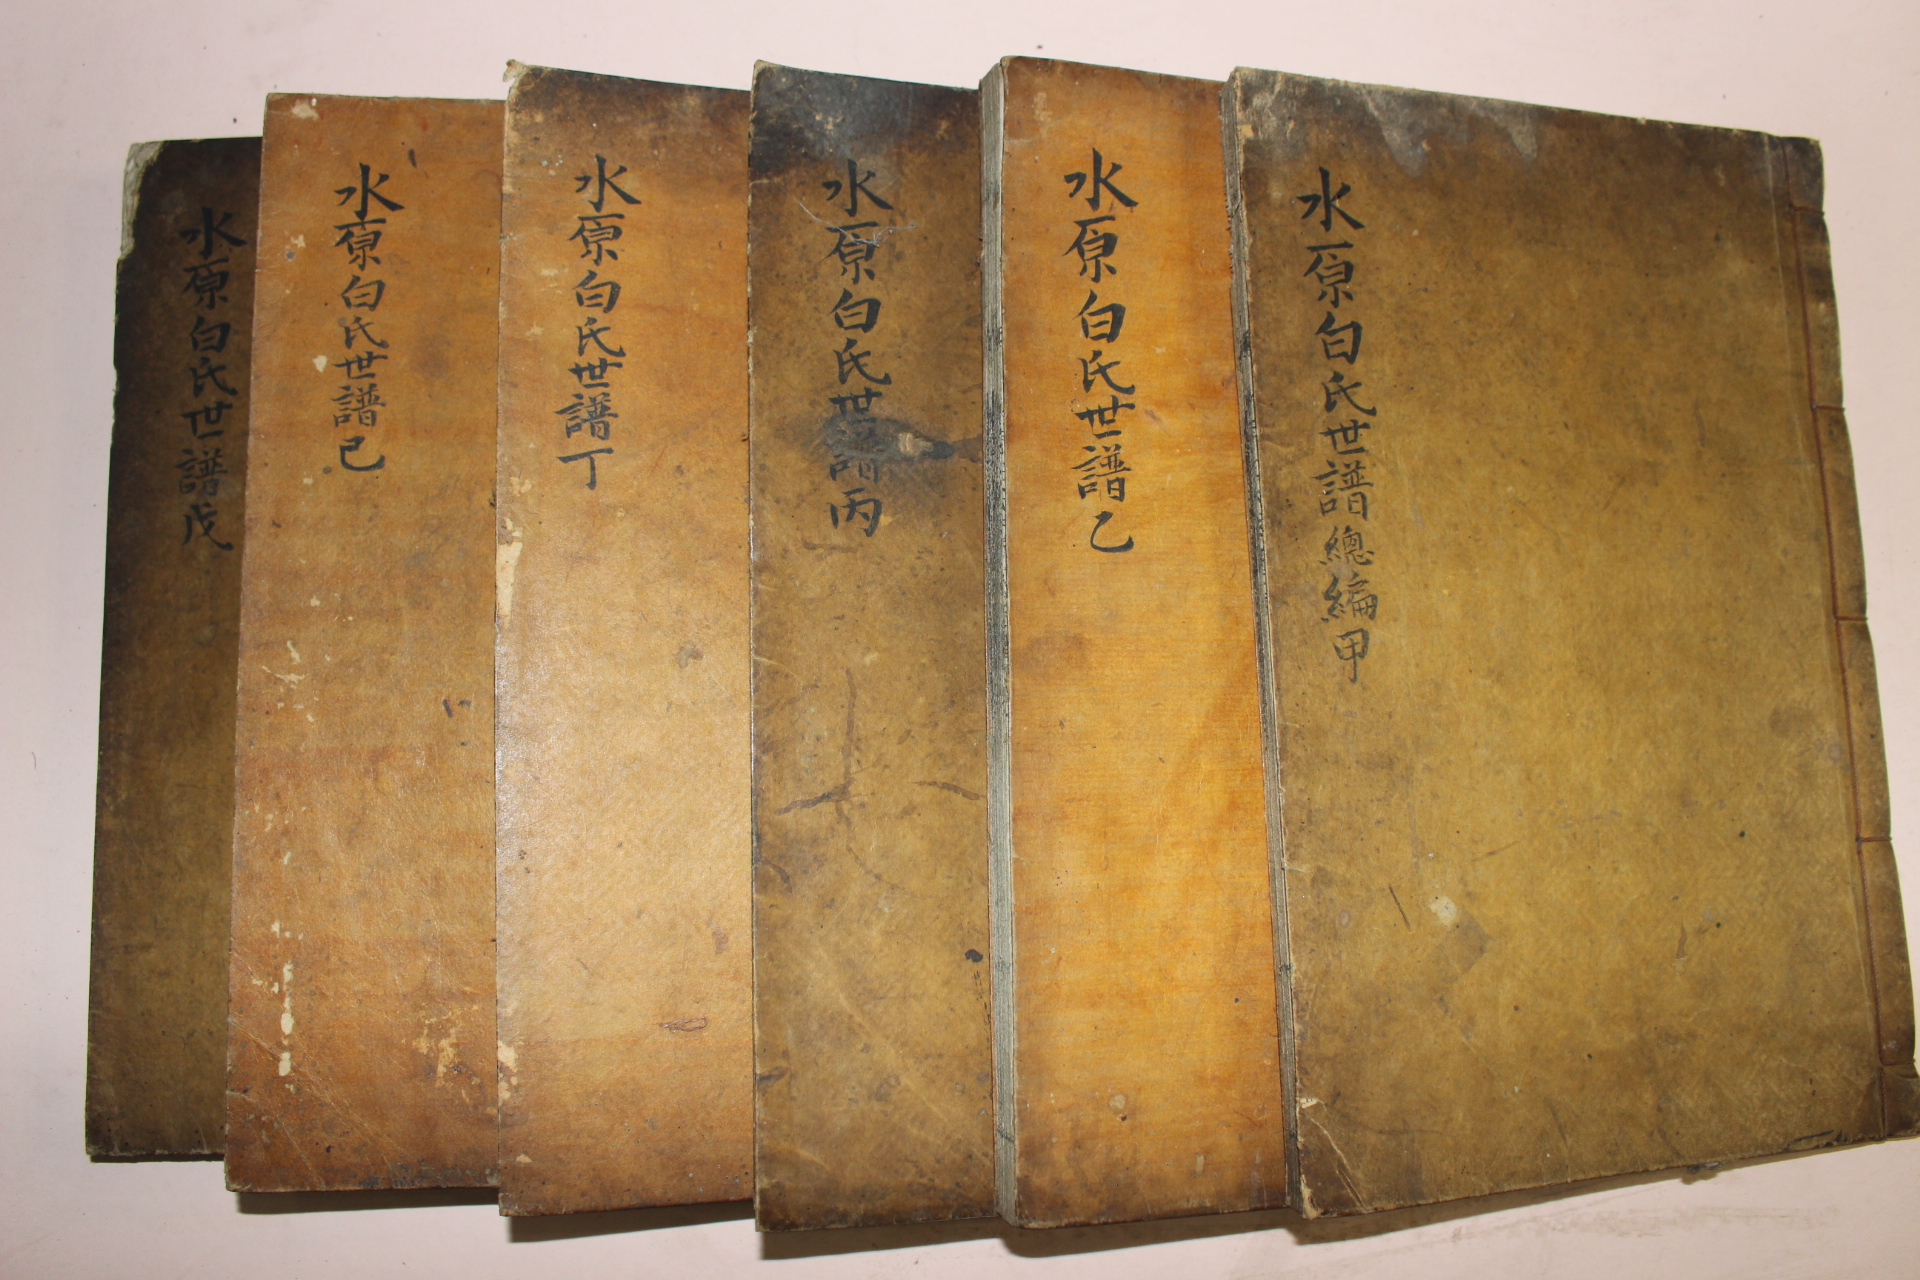 水原白氏世譜總編甲
水原白氏世譜乙
水原白氏世譜丙
水原白氏世譜丁
水原白氏世譜己
水原白氏世譜戊